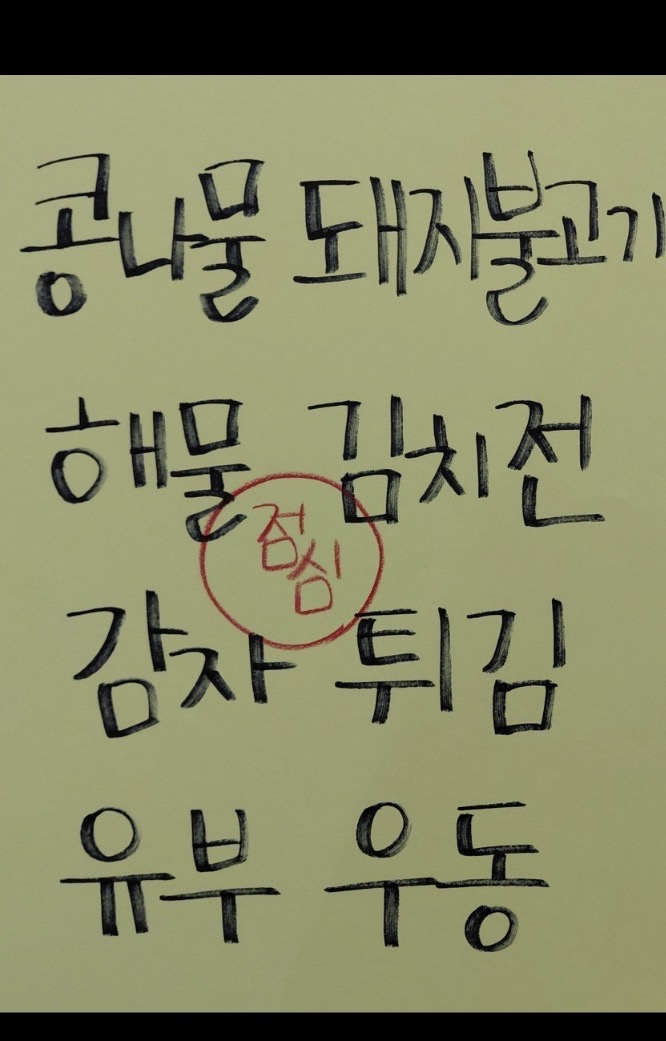 콩나물 돼지불고기
해물 김치전
점심
감자 튀김
유부 우동